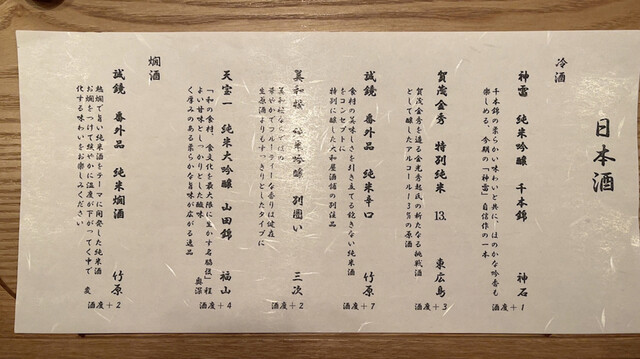 日本酒
冷酒
神雷 純米吟醸 千本錦 神石
酒度+1
千本錦の柔らかい味わいと共に、ほのかな吟香も
楽しめる、今期の「神雷」自信作の一本
賀茂金秀 特別純米 13. 東広島
酒度+3
賀茂金秀を造る金光秀起氏の新たなる挑戦酒
として醸したアルコール13%の原酒
誠鏡 番外品 純米辛口 竹原
酒度+7
食材の美味しさを引き立てる飽きない純米酒
をコンセプトに
特別に醸した大和屋酒舗の別注品
美和桜 純米吟醸 別囲い 三次
酒度+2
美和桜ならではの
華やかでフルーティーな香りは健在
生原酒よりもすっきりとしたタイプに
天宝一 純米大吟醸 山田錦 福山
酒度+4
「和の食材、食文化を最大限に生かす名脇役」程
よい甘味としっかりとした酸味 奥深
く厚みのある柔らかな旨味が広がる逸品
燗酒
誠鏡 番外品 純米燗酒 竹原
酒度+2
熱燗で旨い純米酒をテーマに開発した純米酒
お燗をつけて緩やかに温度が下がってく中で 変
化する味わいをお楽しみください